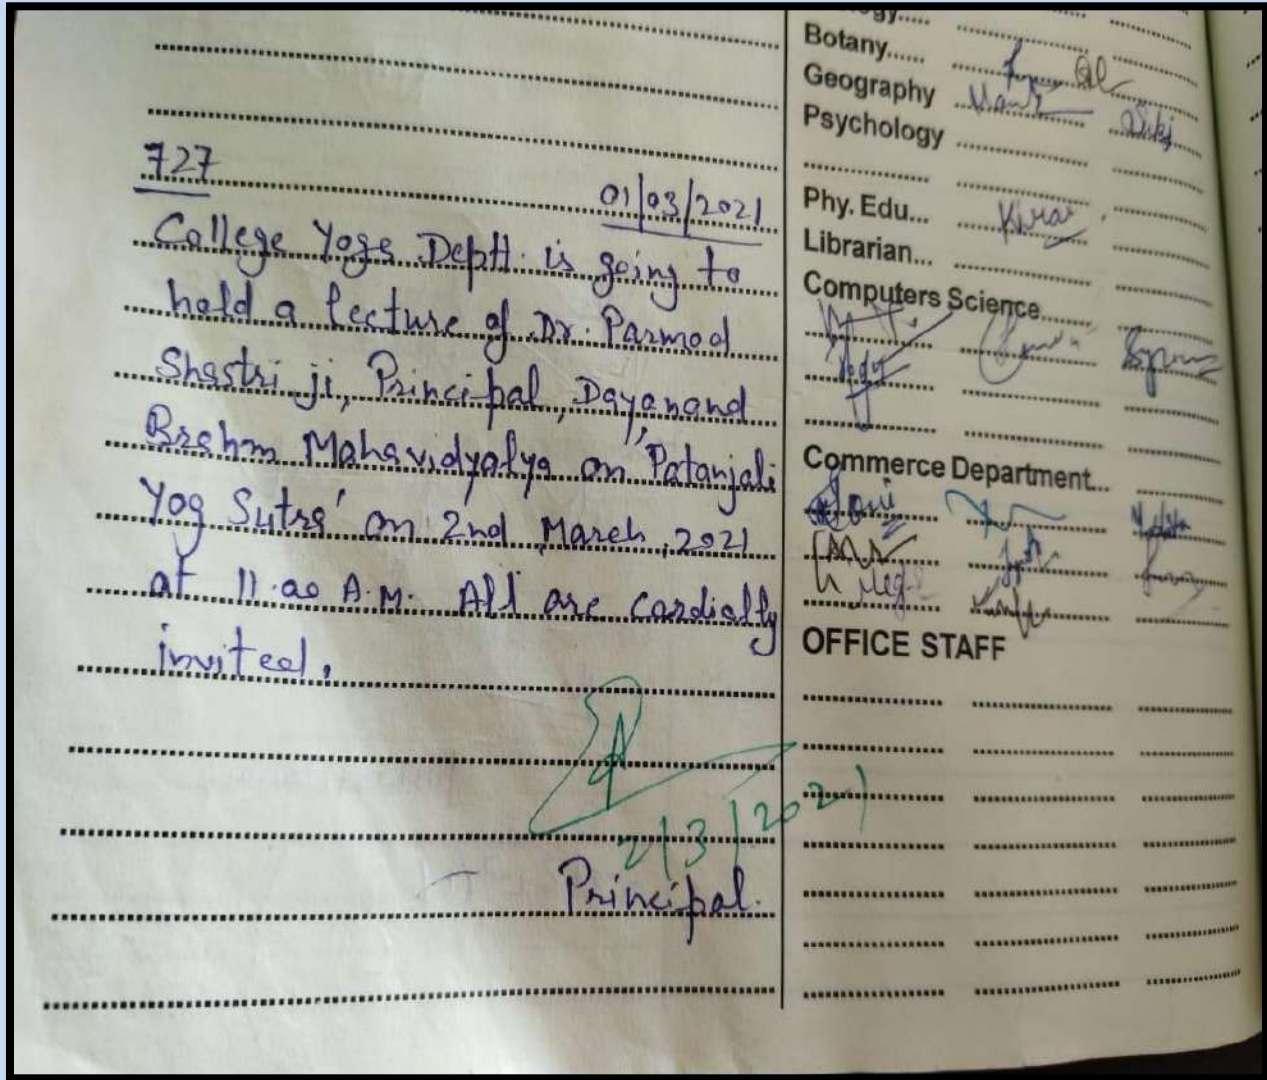 727
01/03/2021
College Yoga Deptt. is going to
hold a lecture of Dr. Parmod
Shastri ji, Principal, Dayanand
Brahm Mahavidyalya on 'Patanjali
Yog Sutra' on 2nd March, 2021
at 11.00 A.M. All are cordially
invited.
2/3/2021
Principal.
Botany......
Geography
Psychology
Phy. Edu...
Kiran
Librarian...
Computers Science
Commerce Department...
OFFICE STAFF